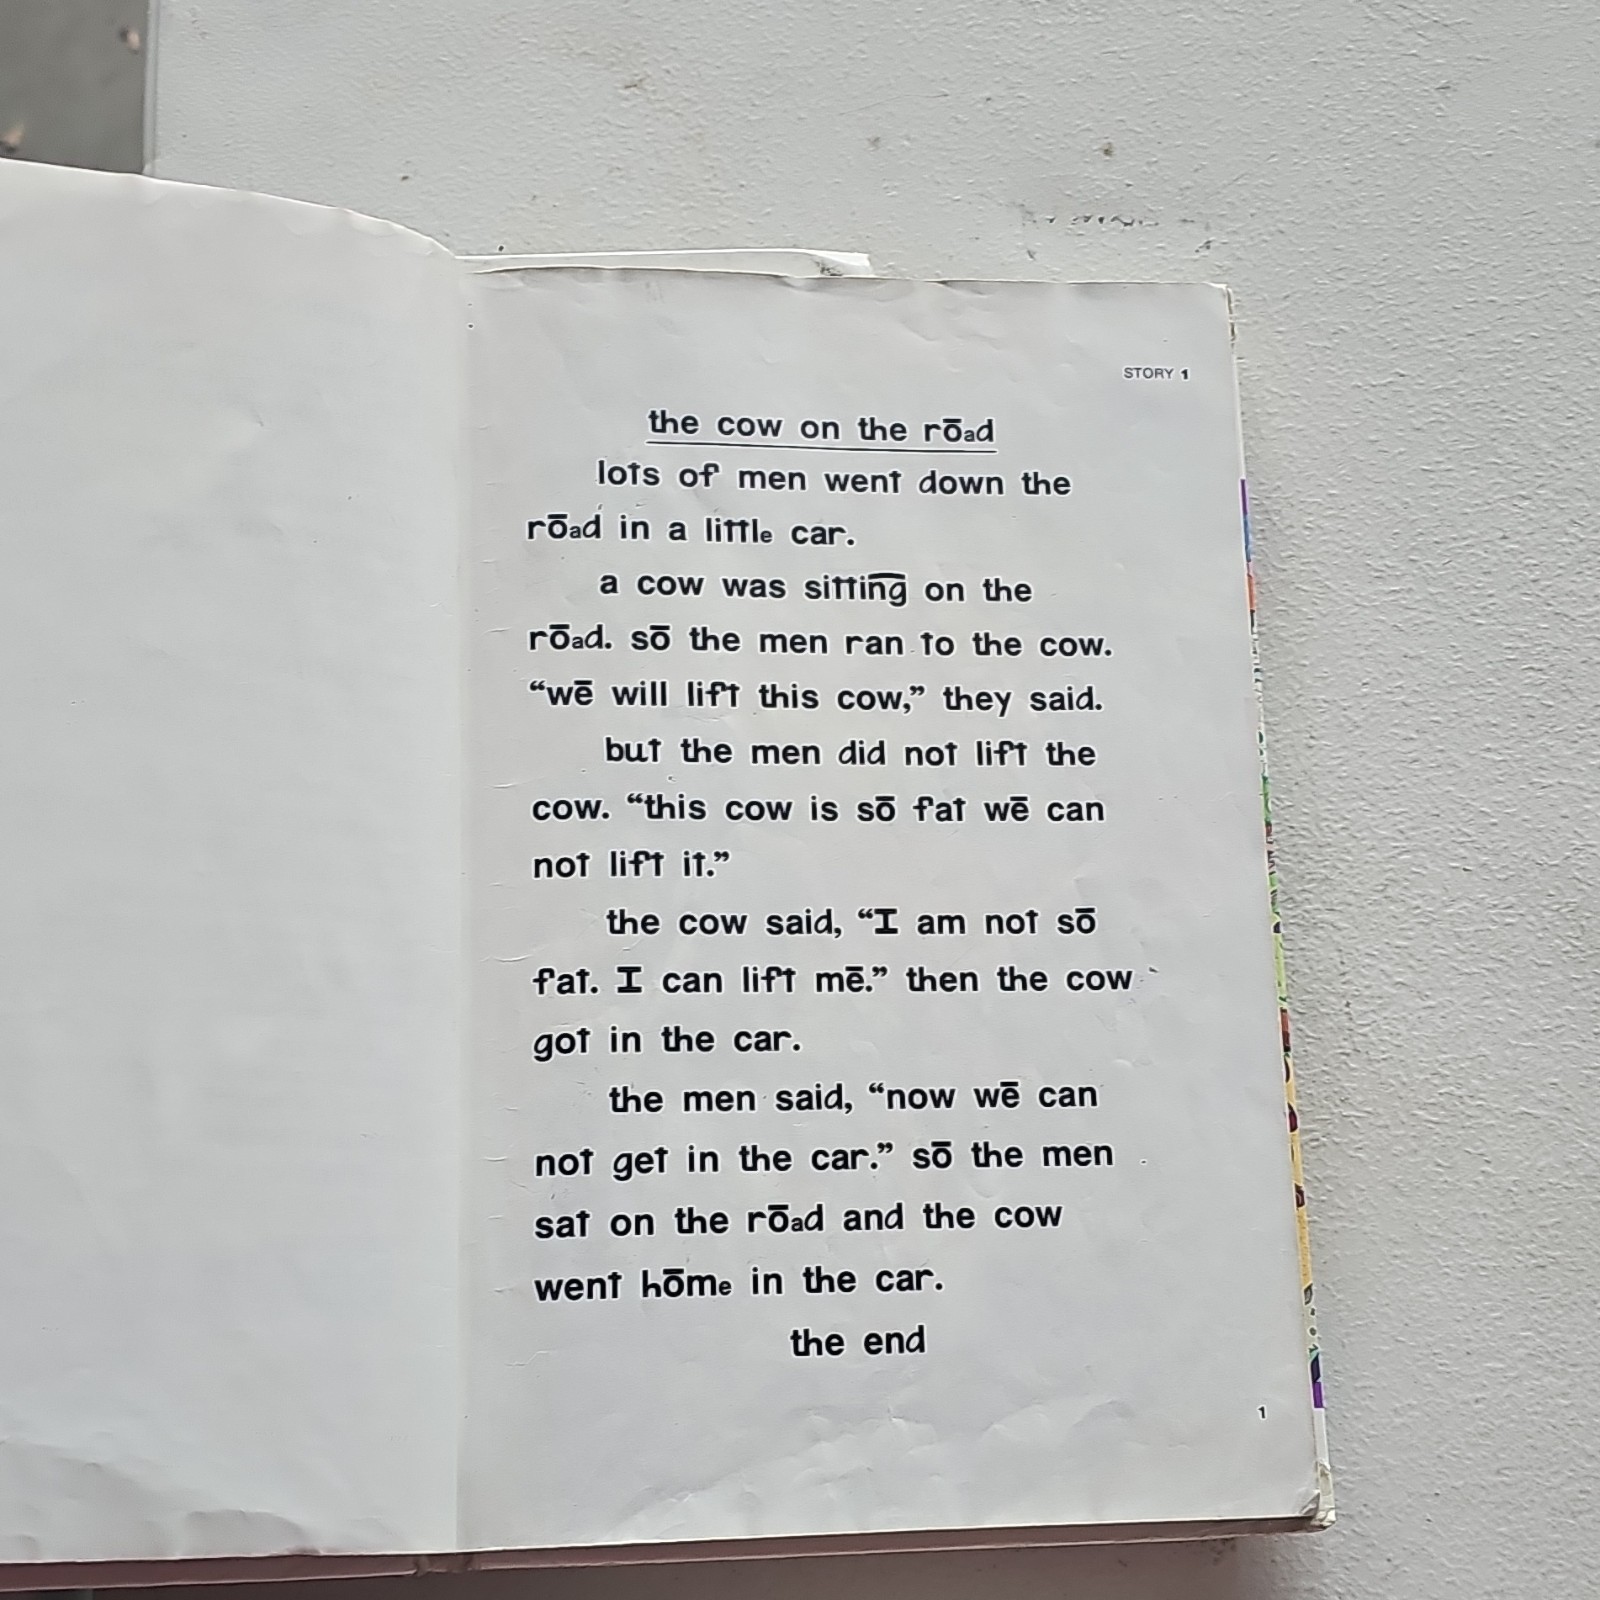 STORY 1
the cow on the rōad
lots of men went down the
rōad in a little car.
a cow was sitting on the
rōad. sō the men ran to the cow.
“wē will lift this cow,” they said.
but the men did not lift the
cow. “this cow is sō fat wē can
not lift it.”
the cow said, “I am not sō
fat. I can lift mē.” then the cow
got in the car.
the men said, “now wē can
not get in the car.” sō the men
sat on the rōad and the cow
went hōme in the car.
the end
1